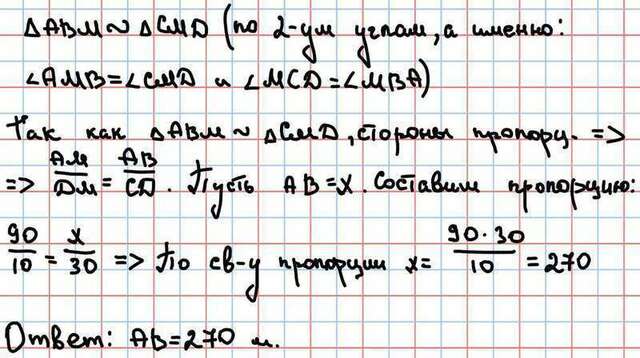 ΔABM ~ ΔCMD (по 2-ум углам, а именно:
∠AMB = ∠CMD и ∠MCD = ∠MBA)
Так как ΔABM ~ ΔCMD, стороны пропорц. =>
=> AM/DM = AB/CD. Пусть AB = x. Составим пропорцию:
90/10 = x/30 => По св-у пропорции x = 90·30/10 = 270
Ответ: AB = 270 м.